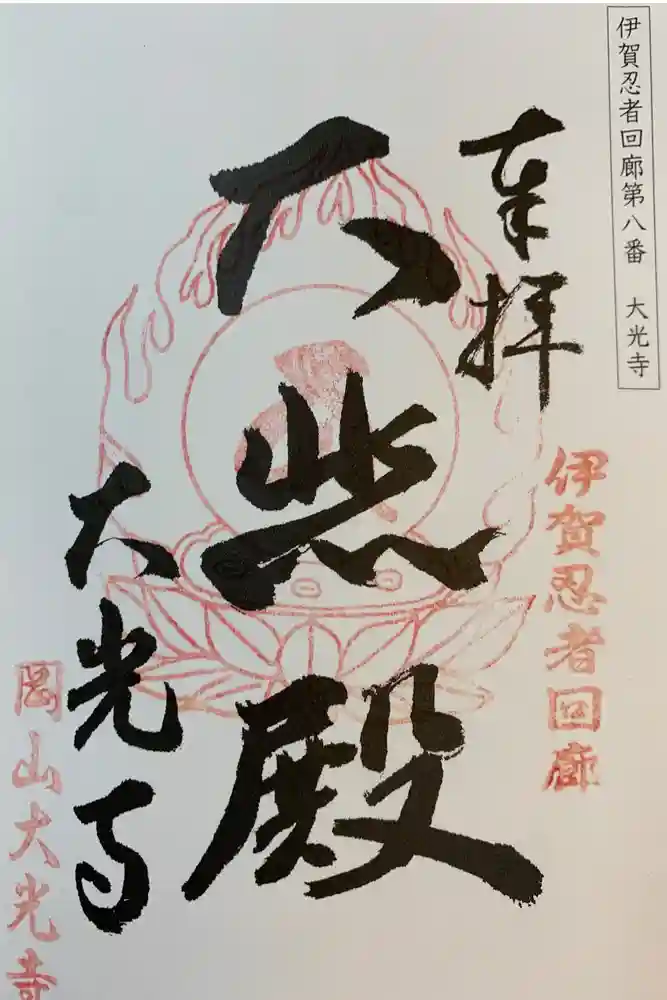 伊賀忍者回廊第八番　大光寺
奉拝
伊賀忍者回廊
大悲殿
大光寺
岡山大光寺